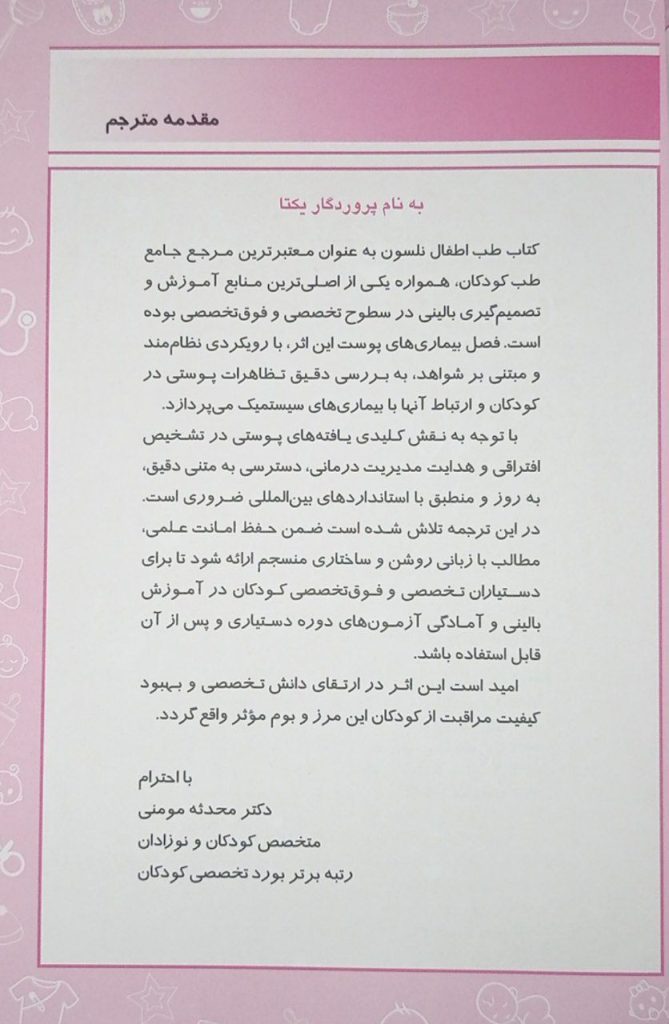 مقدمه مترجم
به نام پروردگار یکتا
کتاب طب اطفال نلسون به عنوان معتبرترین مرجع جامع
طب کودکان، همواره یکی از اصلی‌ترین منابع آموزش و
تصمیم‌گیری بالینی در سطوح تخصصی و فوق‌تخصصی بوده
است. فصل بیماری‌های پوست این اثر، با رویکردی نظام‌مند
و مبتنی بر شواهد، به بررسی دقیق تظاهرات پوستی در
کودکان و ارتباط آنها با بیماری‌های سیستمیک می‌پردازد.
با توجه به نقش کلیدی یافته‌های پوستی در تشخیص
افتراقی و هدایت مدیریت درمانی، دسترسی به متنی دقیق،
به روز و منطبق با استانداردهای بین‌المللی ضروری است.
در این ترجمه تلاش شده است ضمن حفظ امانت علمی،
مطالب با زبانی روشن و ساختاری منسجم ارائه شود تا برای
دستیاران تخصصی و فوق‌تخصصی کودکان در آموزش
بالینی و آمادگی آزمون‌های دوره دستیاری و پس از آن
قابل استفاده باشد.
امید است این اثر در ارتقای دانش تخصصی و بهبود
کیفیت مراقبت از کودکان این مرز و بوم مؤثر واقع گردد.
با احترام
دکتر محدثه مومنی
متخصص کودکان و نوزادان
رتبه برتر بورد تخصصی کودکان